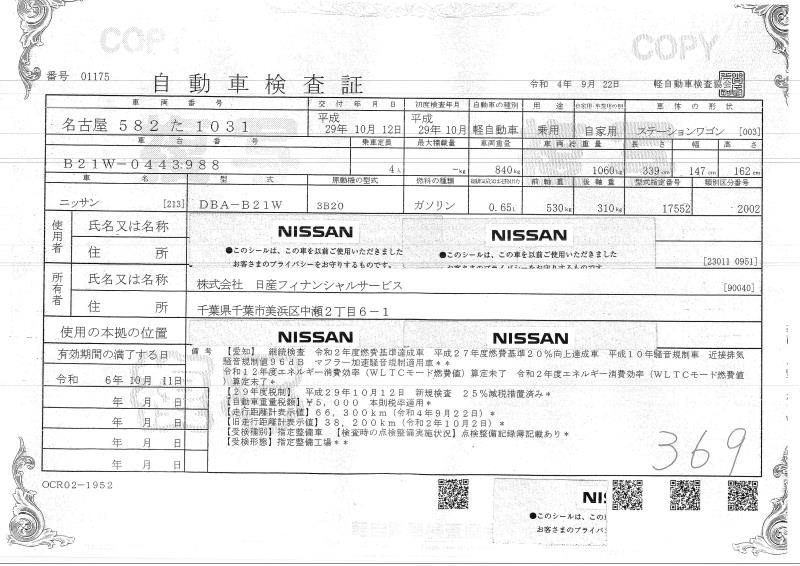 COPY
COPY
番号 01175
自動車検査証
令和 4年 9月 22日 軽自動車検査協会
車両番号 交付年月日 初度検査年月 自動車の種別 用途 自家用・事業用の別 車体の形状
名古屋 582 た 1031 平成 29年 10月 12日 平成 29年 10月 軽自動車 乗用 自家用 ステーションワゴン [003]
車台番号 乗車定員 最大積載量 車両重量 車両総重量 長さ 幅 高さ
B21W-0443988 4人 -kg 840kg 1060kg 339cm 147cm 162cm
車名 型式 原動機の型式 燃料の種類 前軸重 後軸重 型式指定番号 類別区分番号
ニッサン [213] DBA-B21W 3B20 ガソリン 0.65L 530kg 310kg 17552 2002
使用者 氏名又は名称
NISSAN NISSAN
●このシールは、この車を以前ご使用いただきました ●このシールは、この車を以前ご使用いただきました
住所
お客さまのプライバシーをお守りするものです。
[23011 0951]
所有者 氏名又は名称 株式会社 日産フィナンシャルサービス [90040]
住所 千葉県千葉市美浜区中瀬2丁目6-1
使用の本拠の位置 NISSAN NISSAN
有効期間の満了する日
令和 6年 10月 11日
年 月 日
年 月 日
年 月 日
年 月 日
備考 【愛知】 継続検査 令和2年度燃費基準達成車 平成27年度燃費基準20%向上達成車 平成10年騒音規制車 近接排気
騒音規制値96dB マフラー加速騒音規制適用車**
令和12年度エネルギー消費効率(WLTCモード燃費値)算定未了 令和2年度エネルギー消費効率(WLTCモード燃費値
)算定未了*
【29年度税制】 平成29年10月12日 新規検査 25%減税措置済み*
【自動車重量税額】¥5,000 本則税率適用*
【走行距離計表示値】66,300km(令和4年9月22日)
【旧走行距離計表示値】38,200km(令和2年10月2日)*
【受検種別】指定整備車 【検査時の点検整備実施状況】点検整備記録簿記載あり*
【受検形態】指定整備工場**
369
OCR02-1952
NIS
●このシールは、この
お客さまのプライバシ